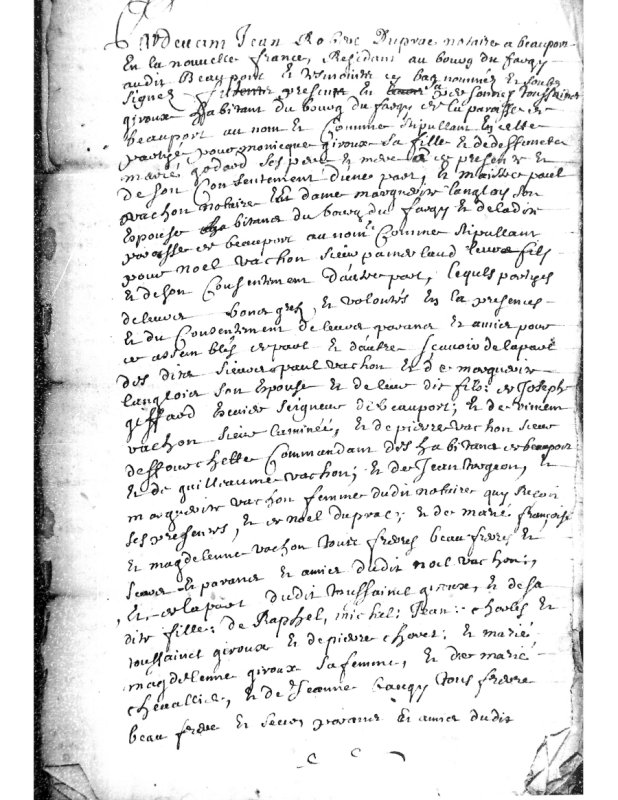 Pardevant Jean Robert Duprac notaire a beauport
En la nouvelle france, Residant au bourg du fargy
audit Beauport Et tesmoins cy bas nommez Et soubz
signez furent presents En personnes toussainct
giroux habitant du bourg du fargy En la paroisse de
beauport au nom Et Comme stipullant En cette
partye pour monicque giroux sa fille Et de deffuncte
marie godard ses pere Et mere a ce presente Et
de son Consentement d'une part, Et maistre paul
vachon notaire Et dame margueritte langloys son
Espouse habitans du bourg du fargy Et de ladite
paroisse de beauport au nom Et Comme stipullant
pour noel vachon sieur pamerlaud leurs fils
Et de son Consentement d'autre part, lequels partyes
de leurs bons grez, Et volontés En la presences
Et du Consentement de leurs parans Et amies pour
ce assemblés de part Et d'autre scavoir de la part
des dits sieurs paul vachon Et de margueritte
langlois son Espouse Et de leur dit fils: de Joseph
giffard Escuier Seigneur de beauport; Et de vincent
vachon sieur laminée, Et de pierre vachon sieur
desfourchette Commandant des habitans de beauport
Et de guilleaume vachon; Et de Jean turgeon, Et
margueritte vachon femme dudit notaire quy recoit
ses presentes, Et de noel duprac; Et de marie françoise
Et magdelenne vachon tous freres beau freres Et
seurs Et parans Et amies dudit noel vachon;
Et, de la part dudit toussainct giroux, Et de sa
dite fille: de Raphel, michel; Jean: charles Et
toussainct giroux Et de pierre choret; Et marie
magdelenne giroux sa femme, Et de marie
chevallier, Et de Jeanne baugy tous freres
beau frere Et seurs parans Et amies dudit